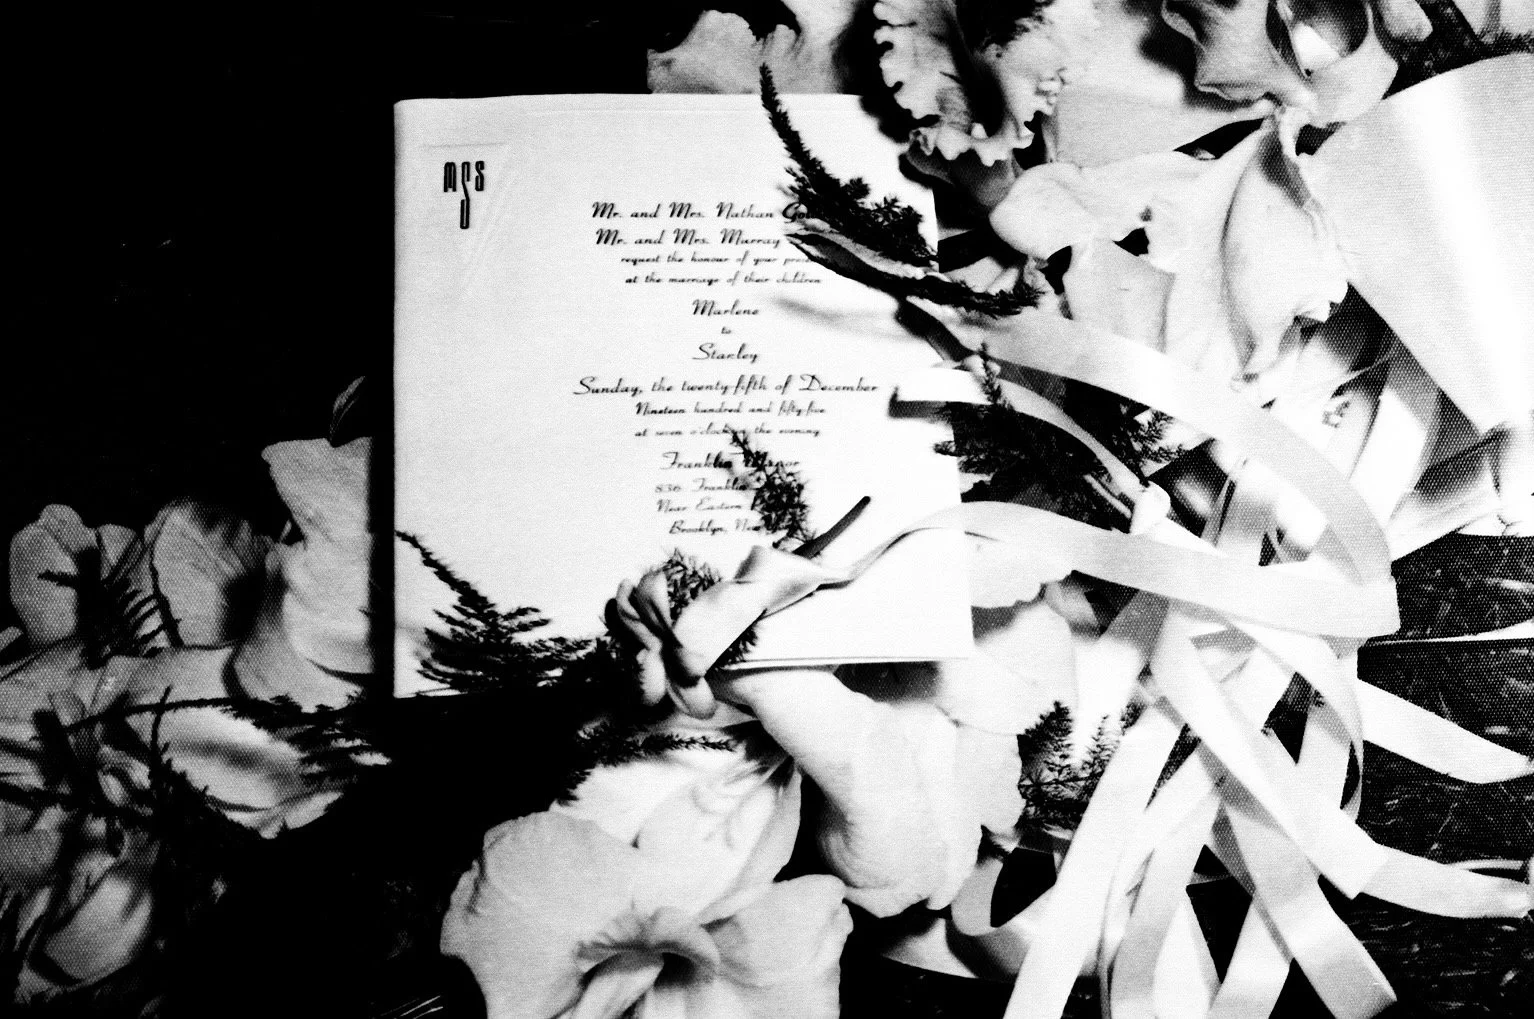 MSS
U
Mr. and Mrs. Nathan
Mr. and Mrs. Murray
request the honour of your
at the marriage of their children
Marlene
to
Stanley
Sunday, the twenty-fifth of December
Nineteen hundred and fifty-five
at seven o'clock in the evening
Franklin Manor
836 Franklin
Near Eastern
Brooklyn, New